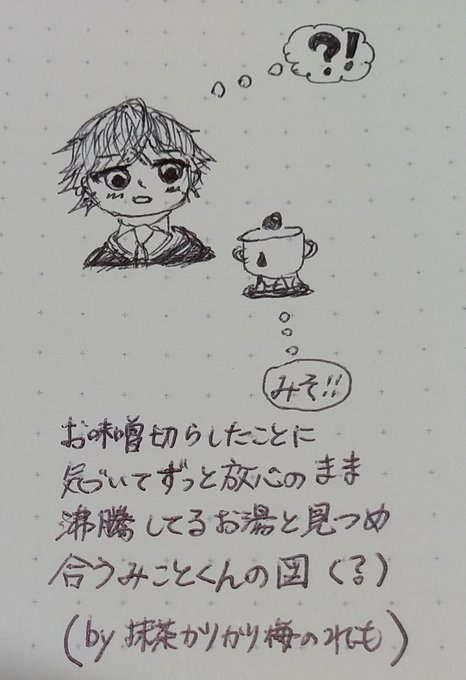 ?!
みそ!!
お味噌切らしたことに
気づいてずっと放心のまま
沸騰してるお湯と見つめ
合うみことくんの図(?)
(by 抹茶カリカリ梅のれも)